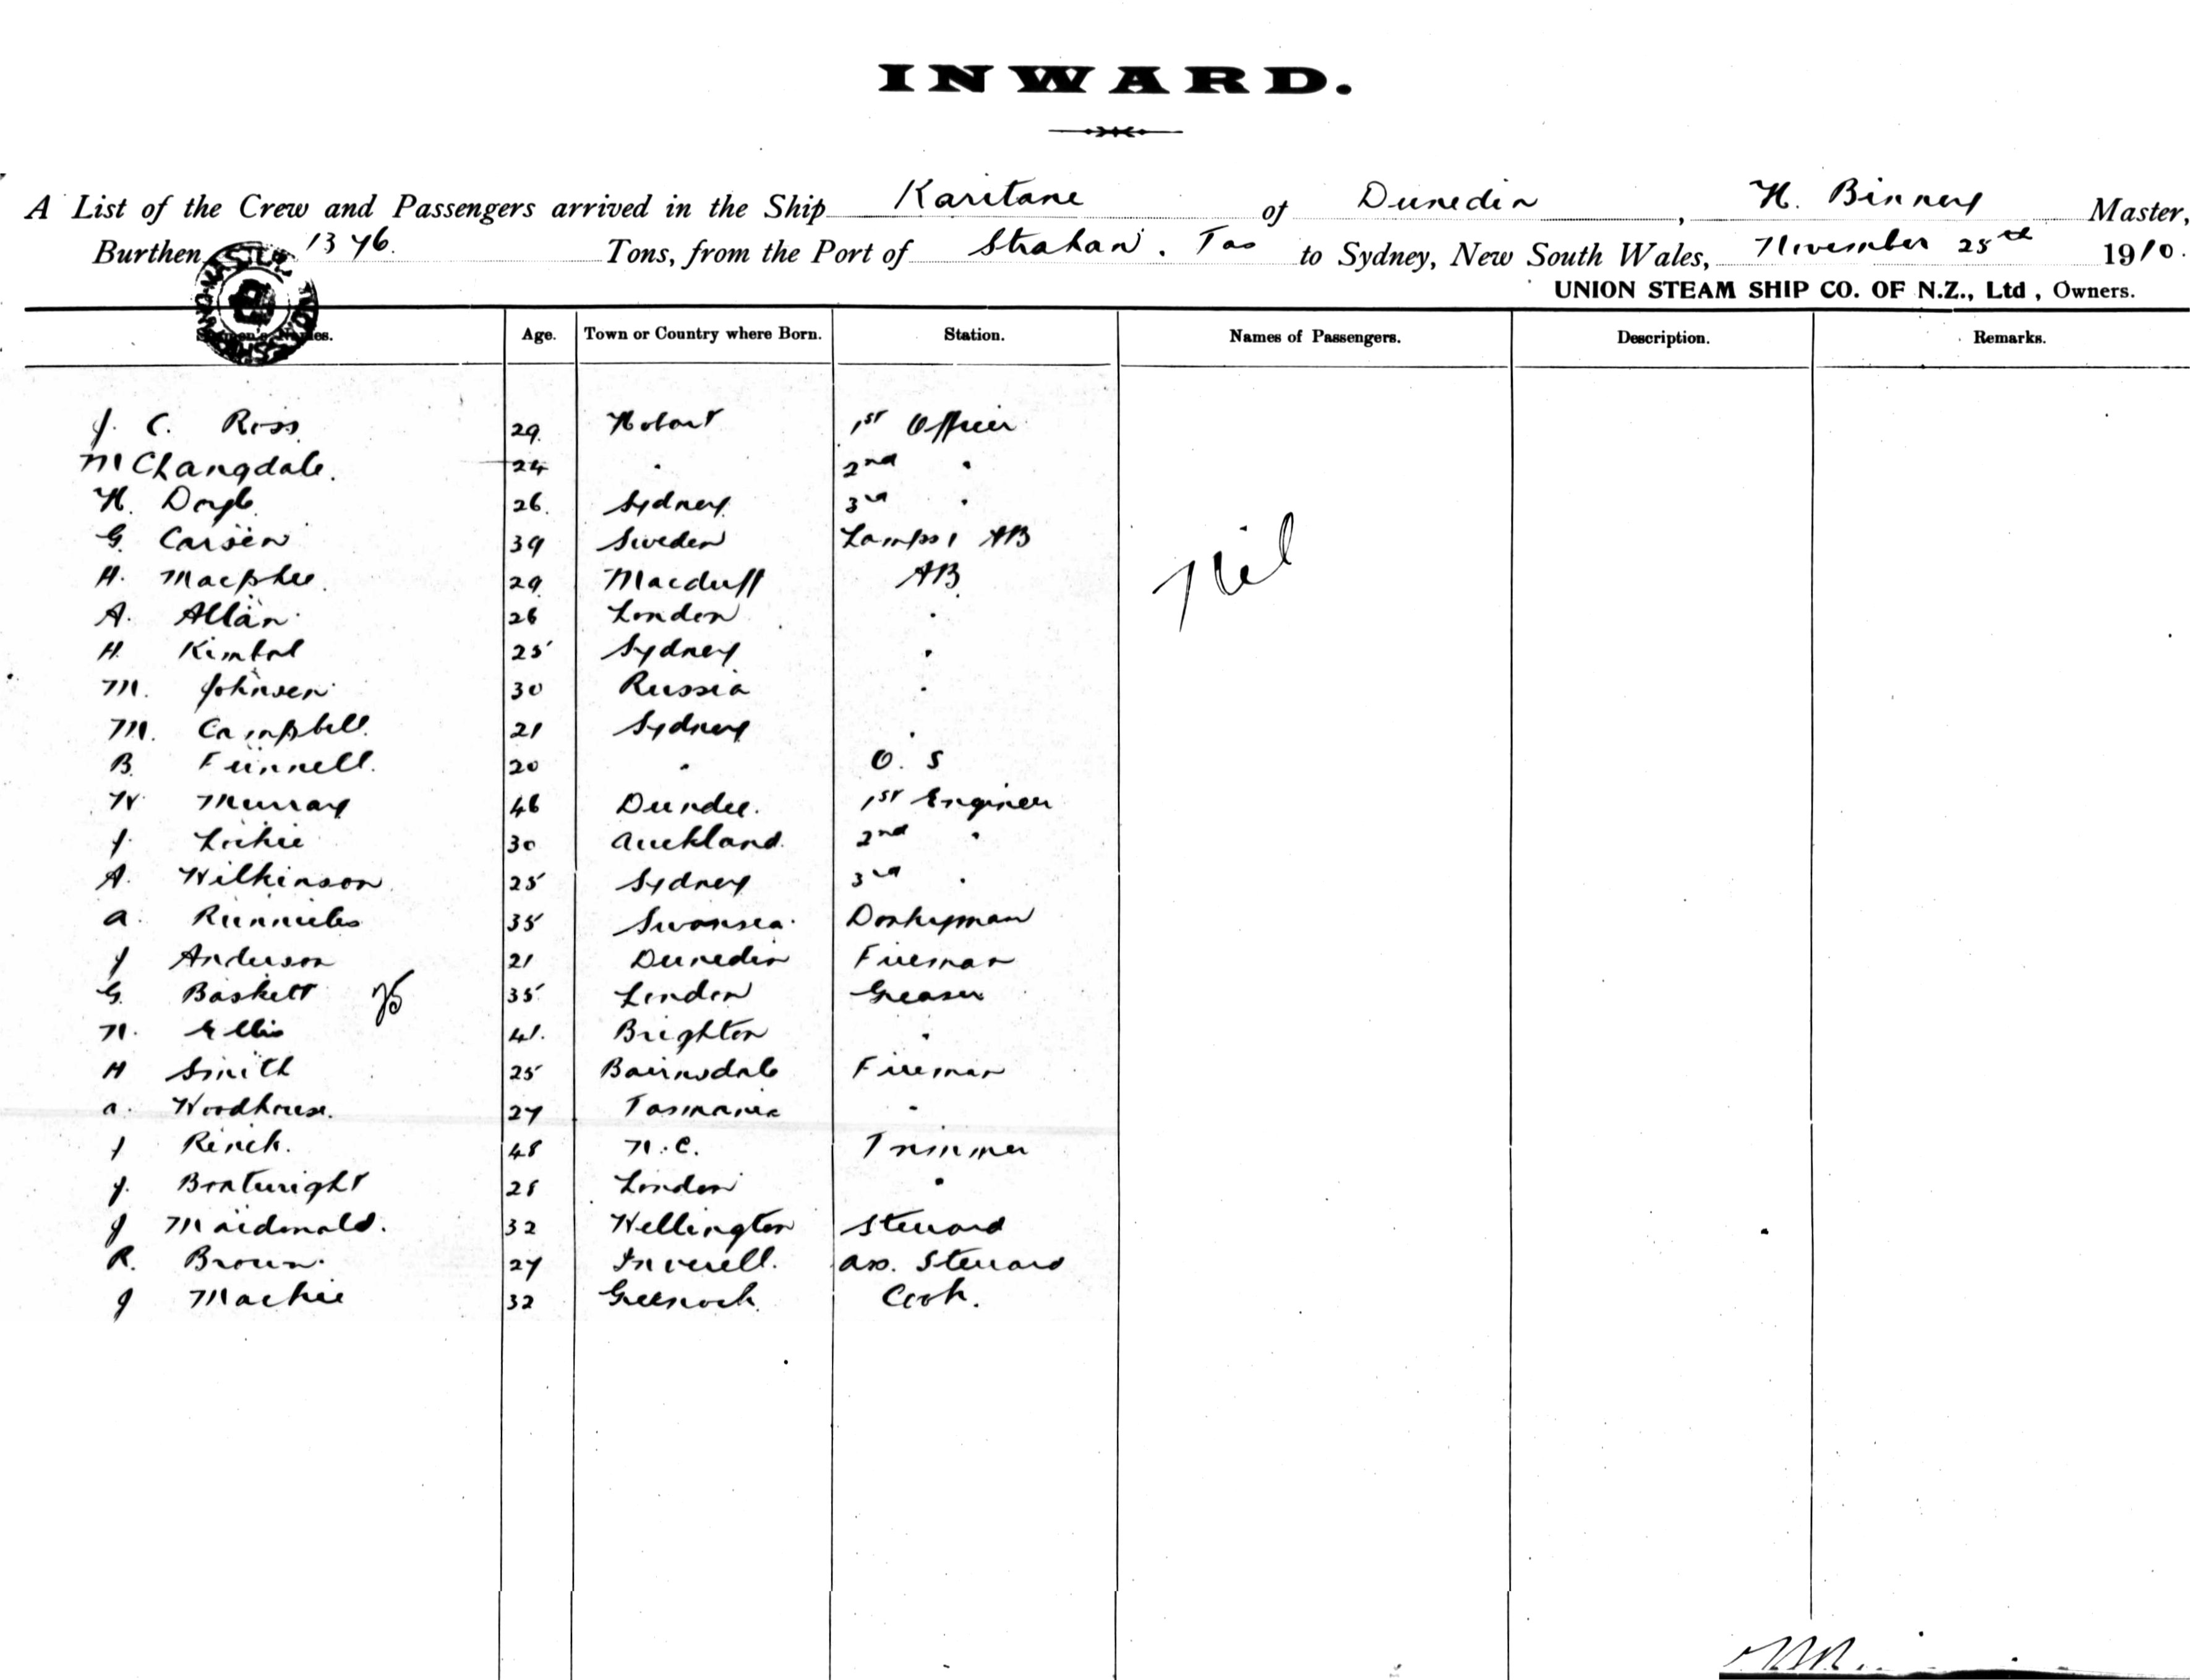 INWARD.
A List of the Crew and Passengers arrived in the Ship Karitane of Dunedin, H. Binney Master,
Burthen 1376. Tons, from the Port of Strahan. Tas to Sydney, New South Wales, November 25th 1910.
UNION STEAM SHIP CO. OF N.Z., Ltd, Owners.
Seamen's Names. Age. Town or Country where Born. Station. Names of Passengers. Description. Remarks.
J. C. Ross 29. Hobart 1st Officer
24 " 2nd "
H. Doyle 26. Sydney 3rd "
G. Carsen 39 Sweden Lamps & AB
H. Macphee 29 Macduff AB
Nil
A. Allan 26 London "
H. Kimbal 25 Sydney "
M. Johnsen 30 Russia "
M. Campbell 21 Sydney "
B. Funnell. 20 " O. S
W. Murray 46 Dundee. 1st Engineer
J. Lockie 30 Auckland. 2nd "
A. Wilkinson 25 Sydney 3rd "
A. 35 Swansea. Donkeyman
J Anderson 21 Dunedin Fireman
G. Baskett 35 London Greaser
N. Ellis 41. Brighton "
H Smith 25 Bairnsdale Fireman
A. Woodhouse. 27 Tasmania "
J 48 N.C. Trimmer
J. Boatwright 28 London "
J Macdonald. 32 Wellington Steward
R. Brown. 27 Inverell. Ass. Steward
J Mackie 32 Greenock Cook.